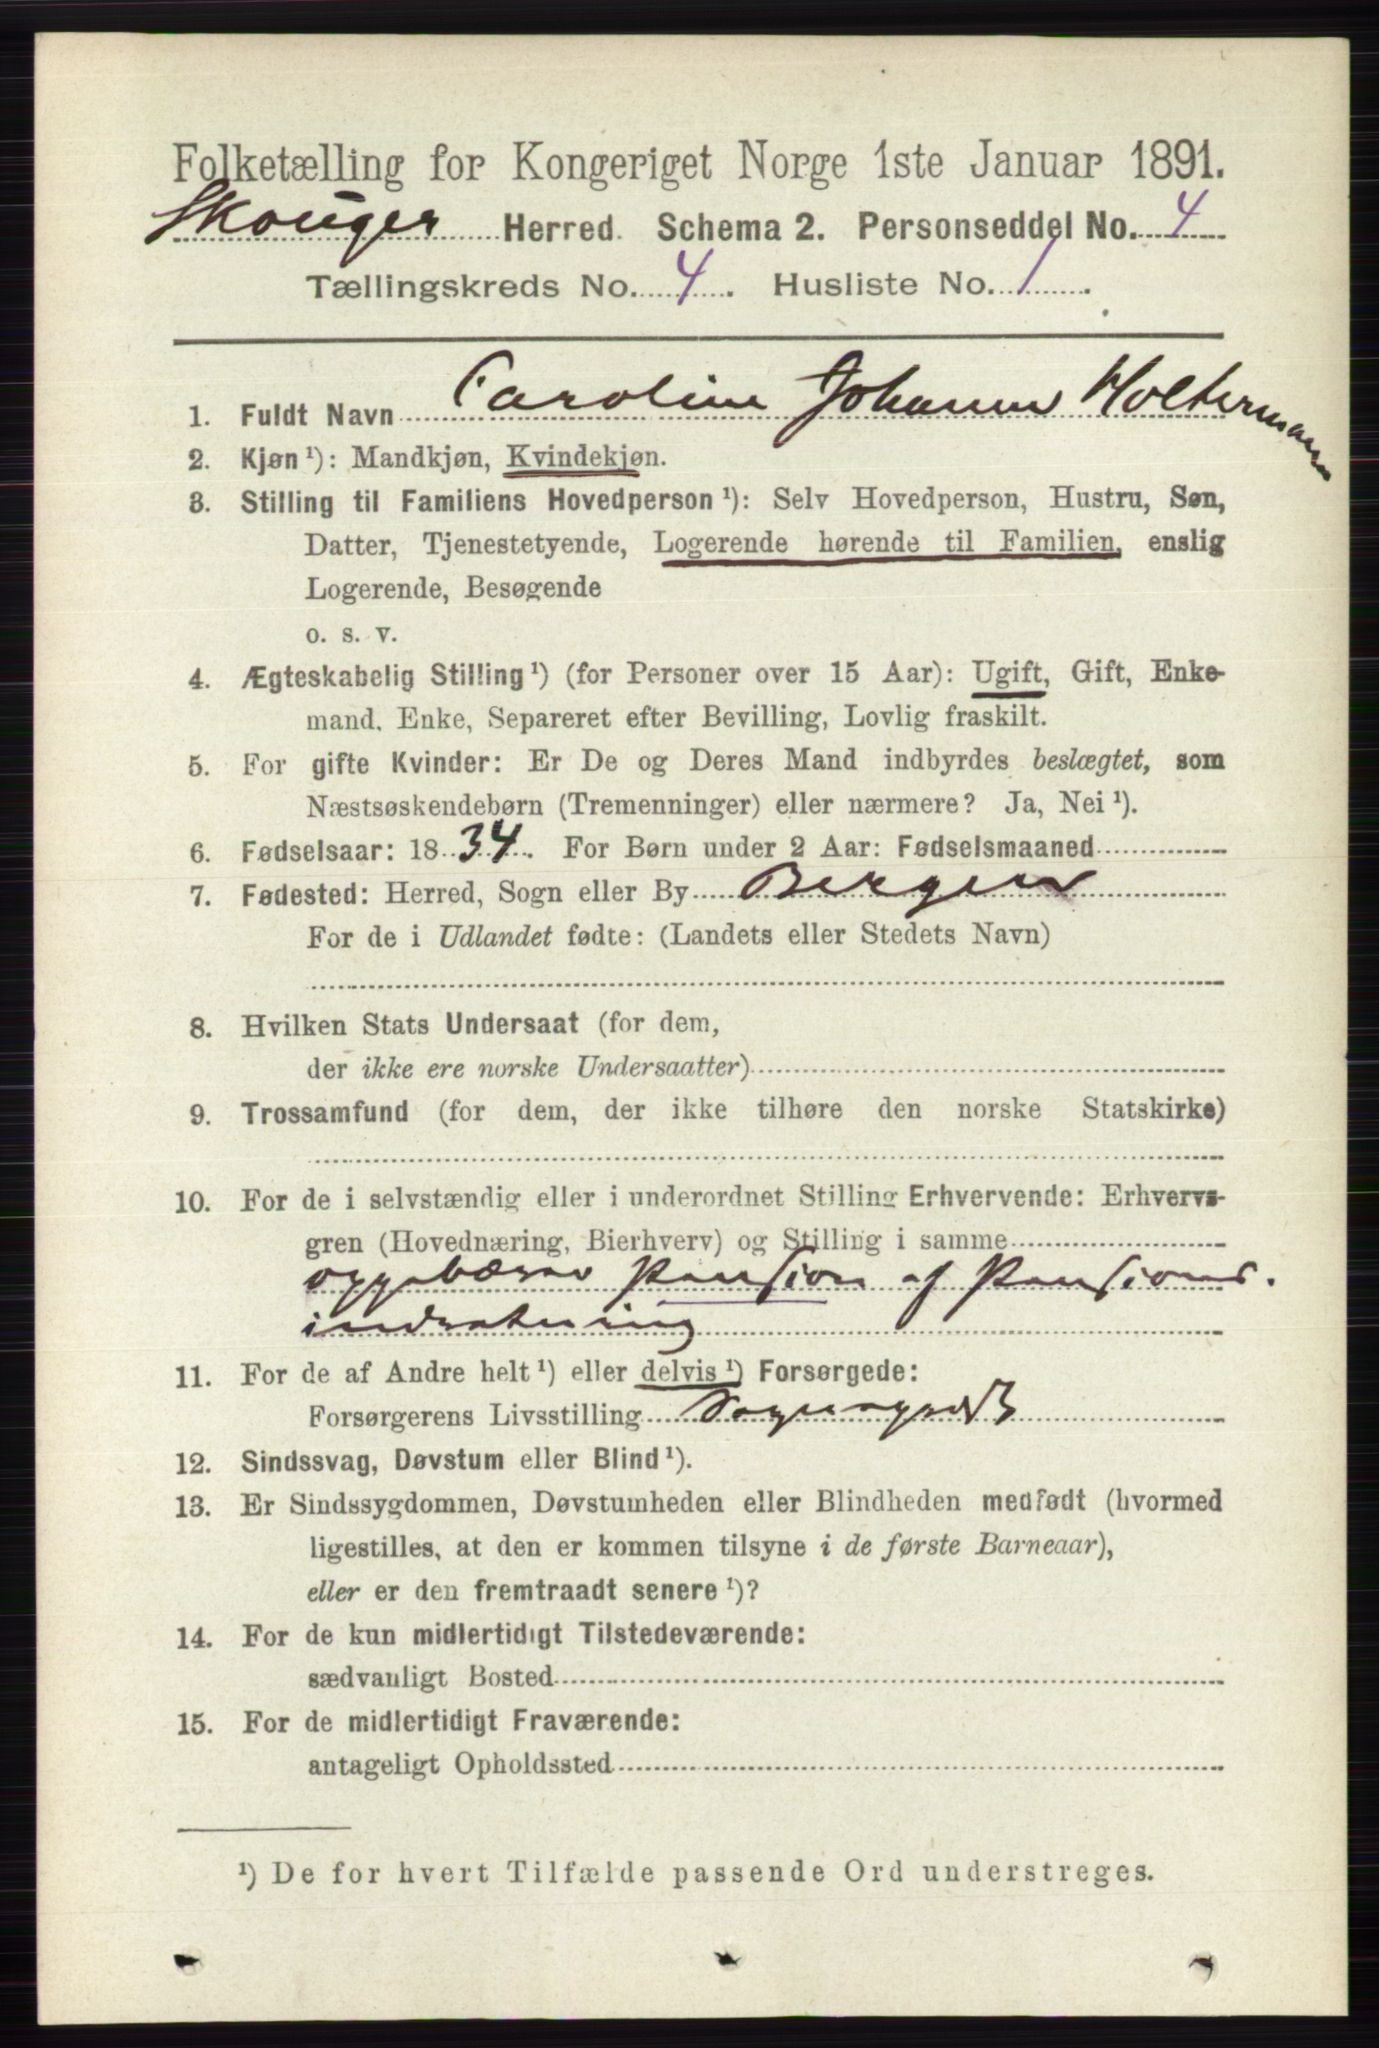 Folketælling for Kongeriget Norge 1ste Januar 1891.
Skouger Herred. Schema 2. Personseddel No. 4
Tællingskreds No. 4. Husliste No. 1.
1. Fuldt Navn Caroline Johanne Holtermann
2. Kjøn ¹): Mandkjøn, Kvindekjøn.
3. Stilling til Familiens Hovedperson ¹): Selv Hovedperson, Hustru, Søn,
Datter, Tjenestetyende, Logerende hørende til Familien, enslig
Logerende, Besøgende
o. s. v.
4. Ægteskabelig Stilling ¹) (for Personer over 15 Aar): Ugift, Gift, Enke-
mand, Enke, Separeret efter Bevilling, Lovlig fraskilt.
5. For gifte Kvinder: Er De og Deres Mand indbyrdes beslægtet, som
Næstsøskendebørn (Tremenninger) eller nærmere? Ja, Nei ¹).
6. Fødselsaar: 1834. For Børn under 2 Aar: Fødselsmaaned
7. Fødested: Herred, Sogn eller By Bergen
For de i Udlandet fødte: (Landets eller Stedets Navn)
8. Hvilken Stats Undersaat (for dem,
der ikke ere norske Undersaatter)
9. Trossamfund (for dem, der ikke tilhøre den norske Statskirke)
10. For de i selvstændig eller i underordnet Stilling Erhvervende: Erhvervs-
gren (Hovednæring, Bierhverv) og Stilling i samme
oppebærer Pension af Pensions.
indretning
11. For de af Andre helt ¹) eller delvis ¹) Forsørgede:
Forsørgerens Livsstilling Sognepræst
12. Sindssvag, Døvstum eller Blind ¹).
13. Er Sindssygdommen, Døvstumheden eller Blindheden medfødt (hvormed
ligestilles, at den er kommen tilsyne i de første Barneaar),
eller er den fremtraadt senere ¹)?
14. For de kun midlertidigt Tilstedeværende:
sædvanligt Bosted
15. For de midlertidigt Fraværende:
antageligt Opholdssted
¹) De for hvert Tilfælde passende Ord understreges.